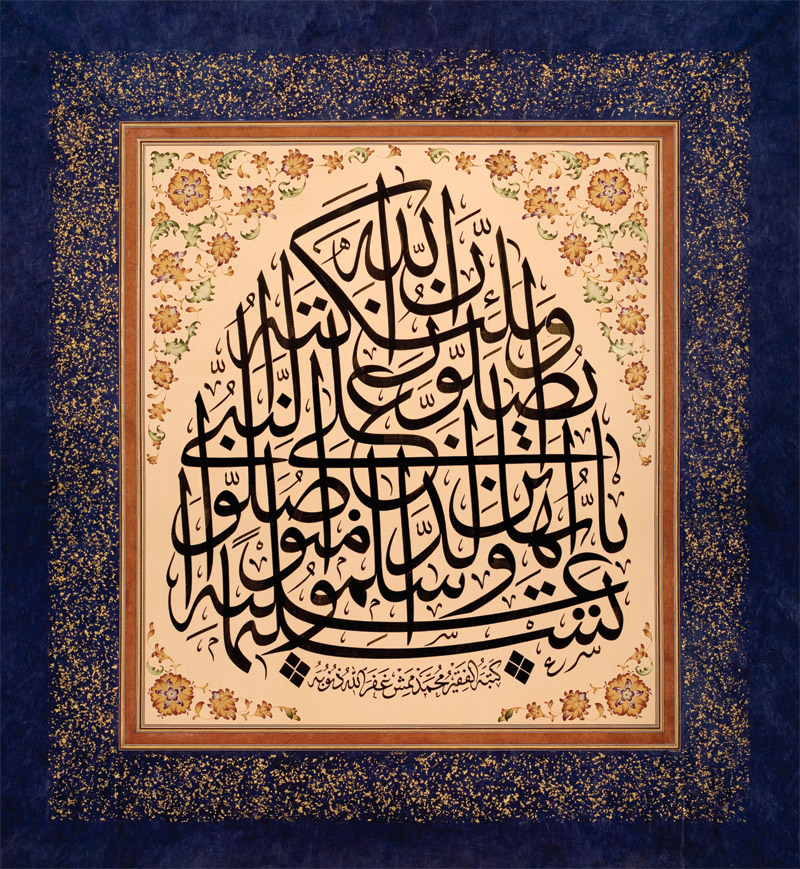 إِنَّ اللهَ وَمَلَائِكَتَهُ يُصَلُّونَ عَلَى النَّبِيِّ يَا أَيُّهَا الَّذِينَ آمَنُوا صَلُّوا عَلَيْهِ وَسَلِّمُوا تَسْلِيمًا
كتبه الفقير محمد ممش غفر الله ذنوبه